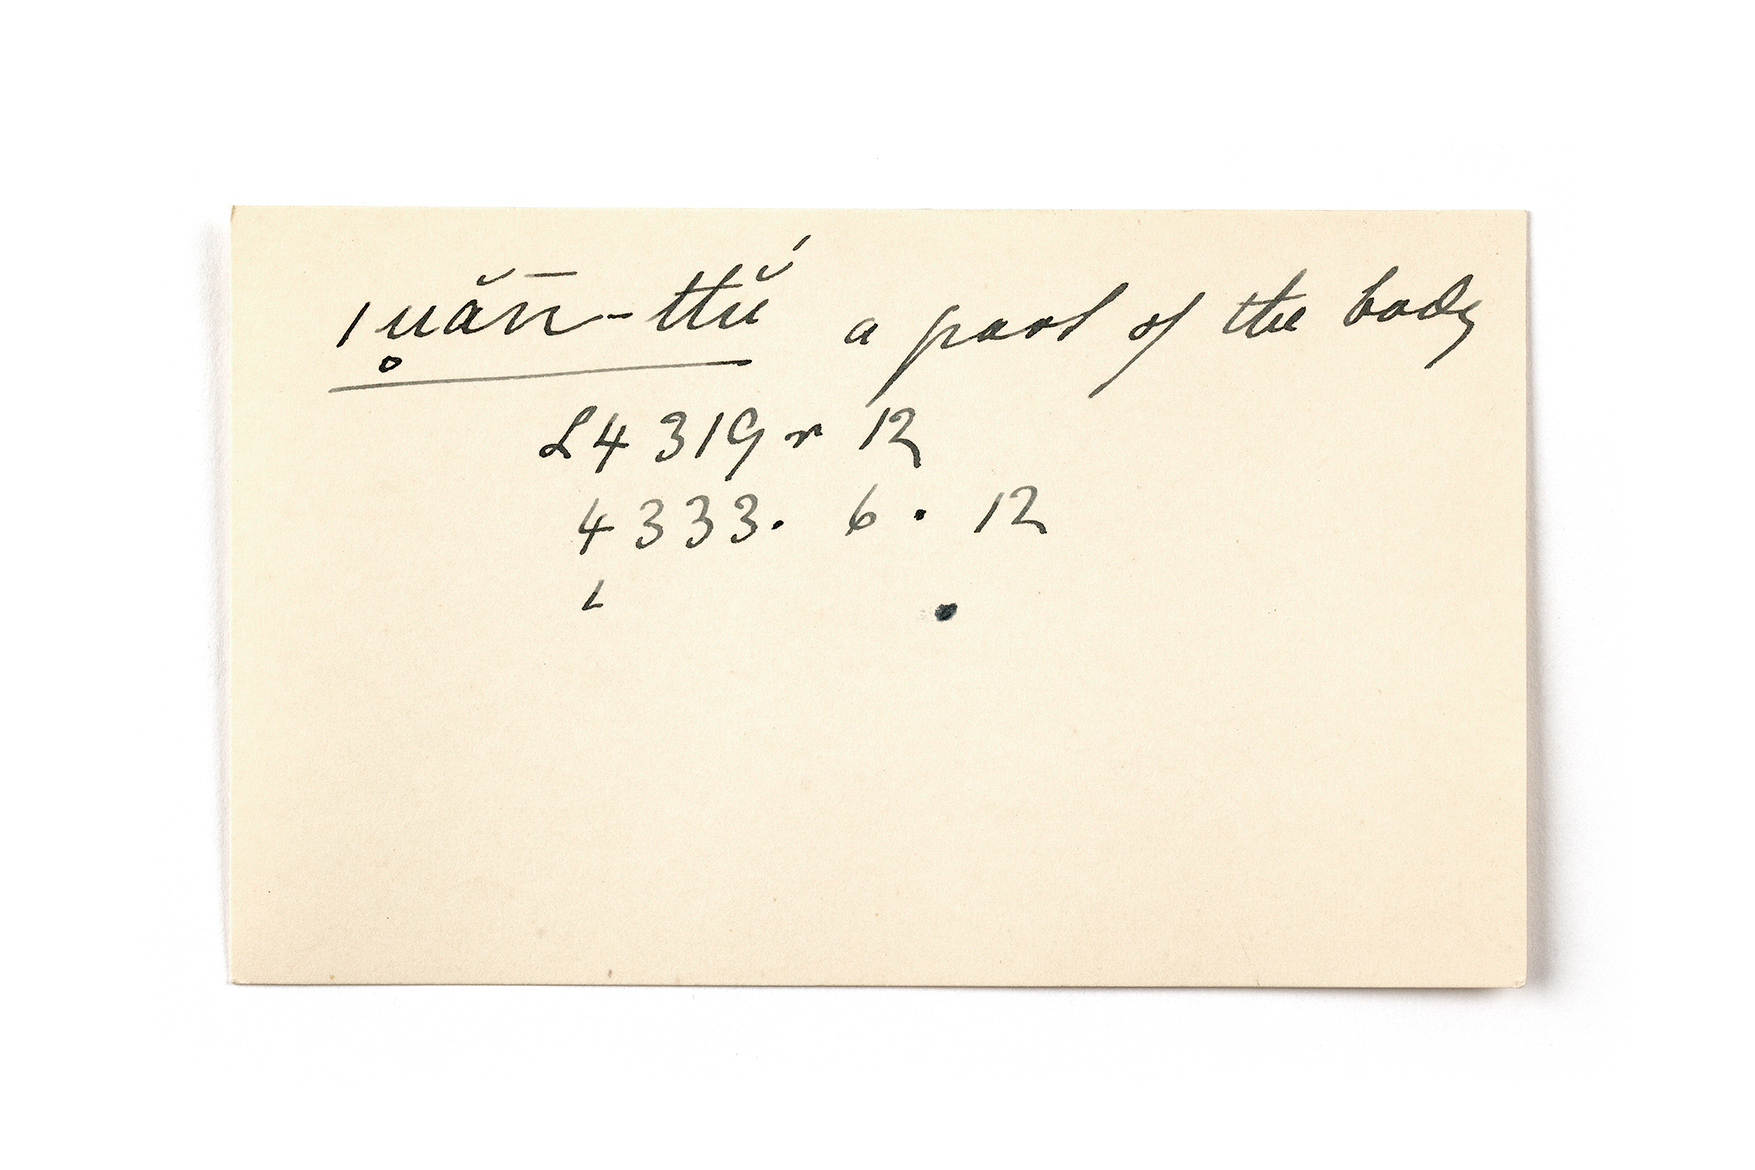 ǀu̥ăn̄-ttŭ́ a part of the body
L4319r 12
4333. 6. 12
L